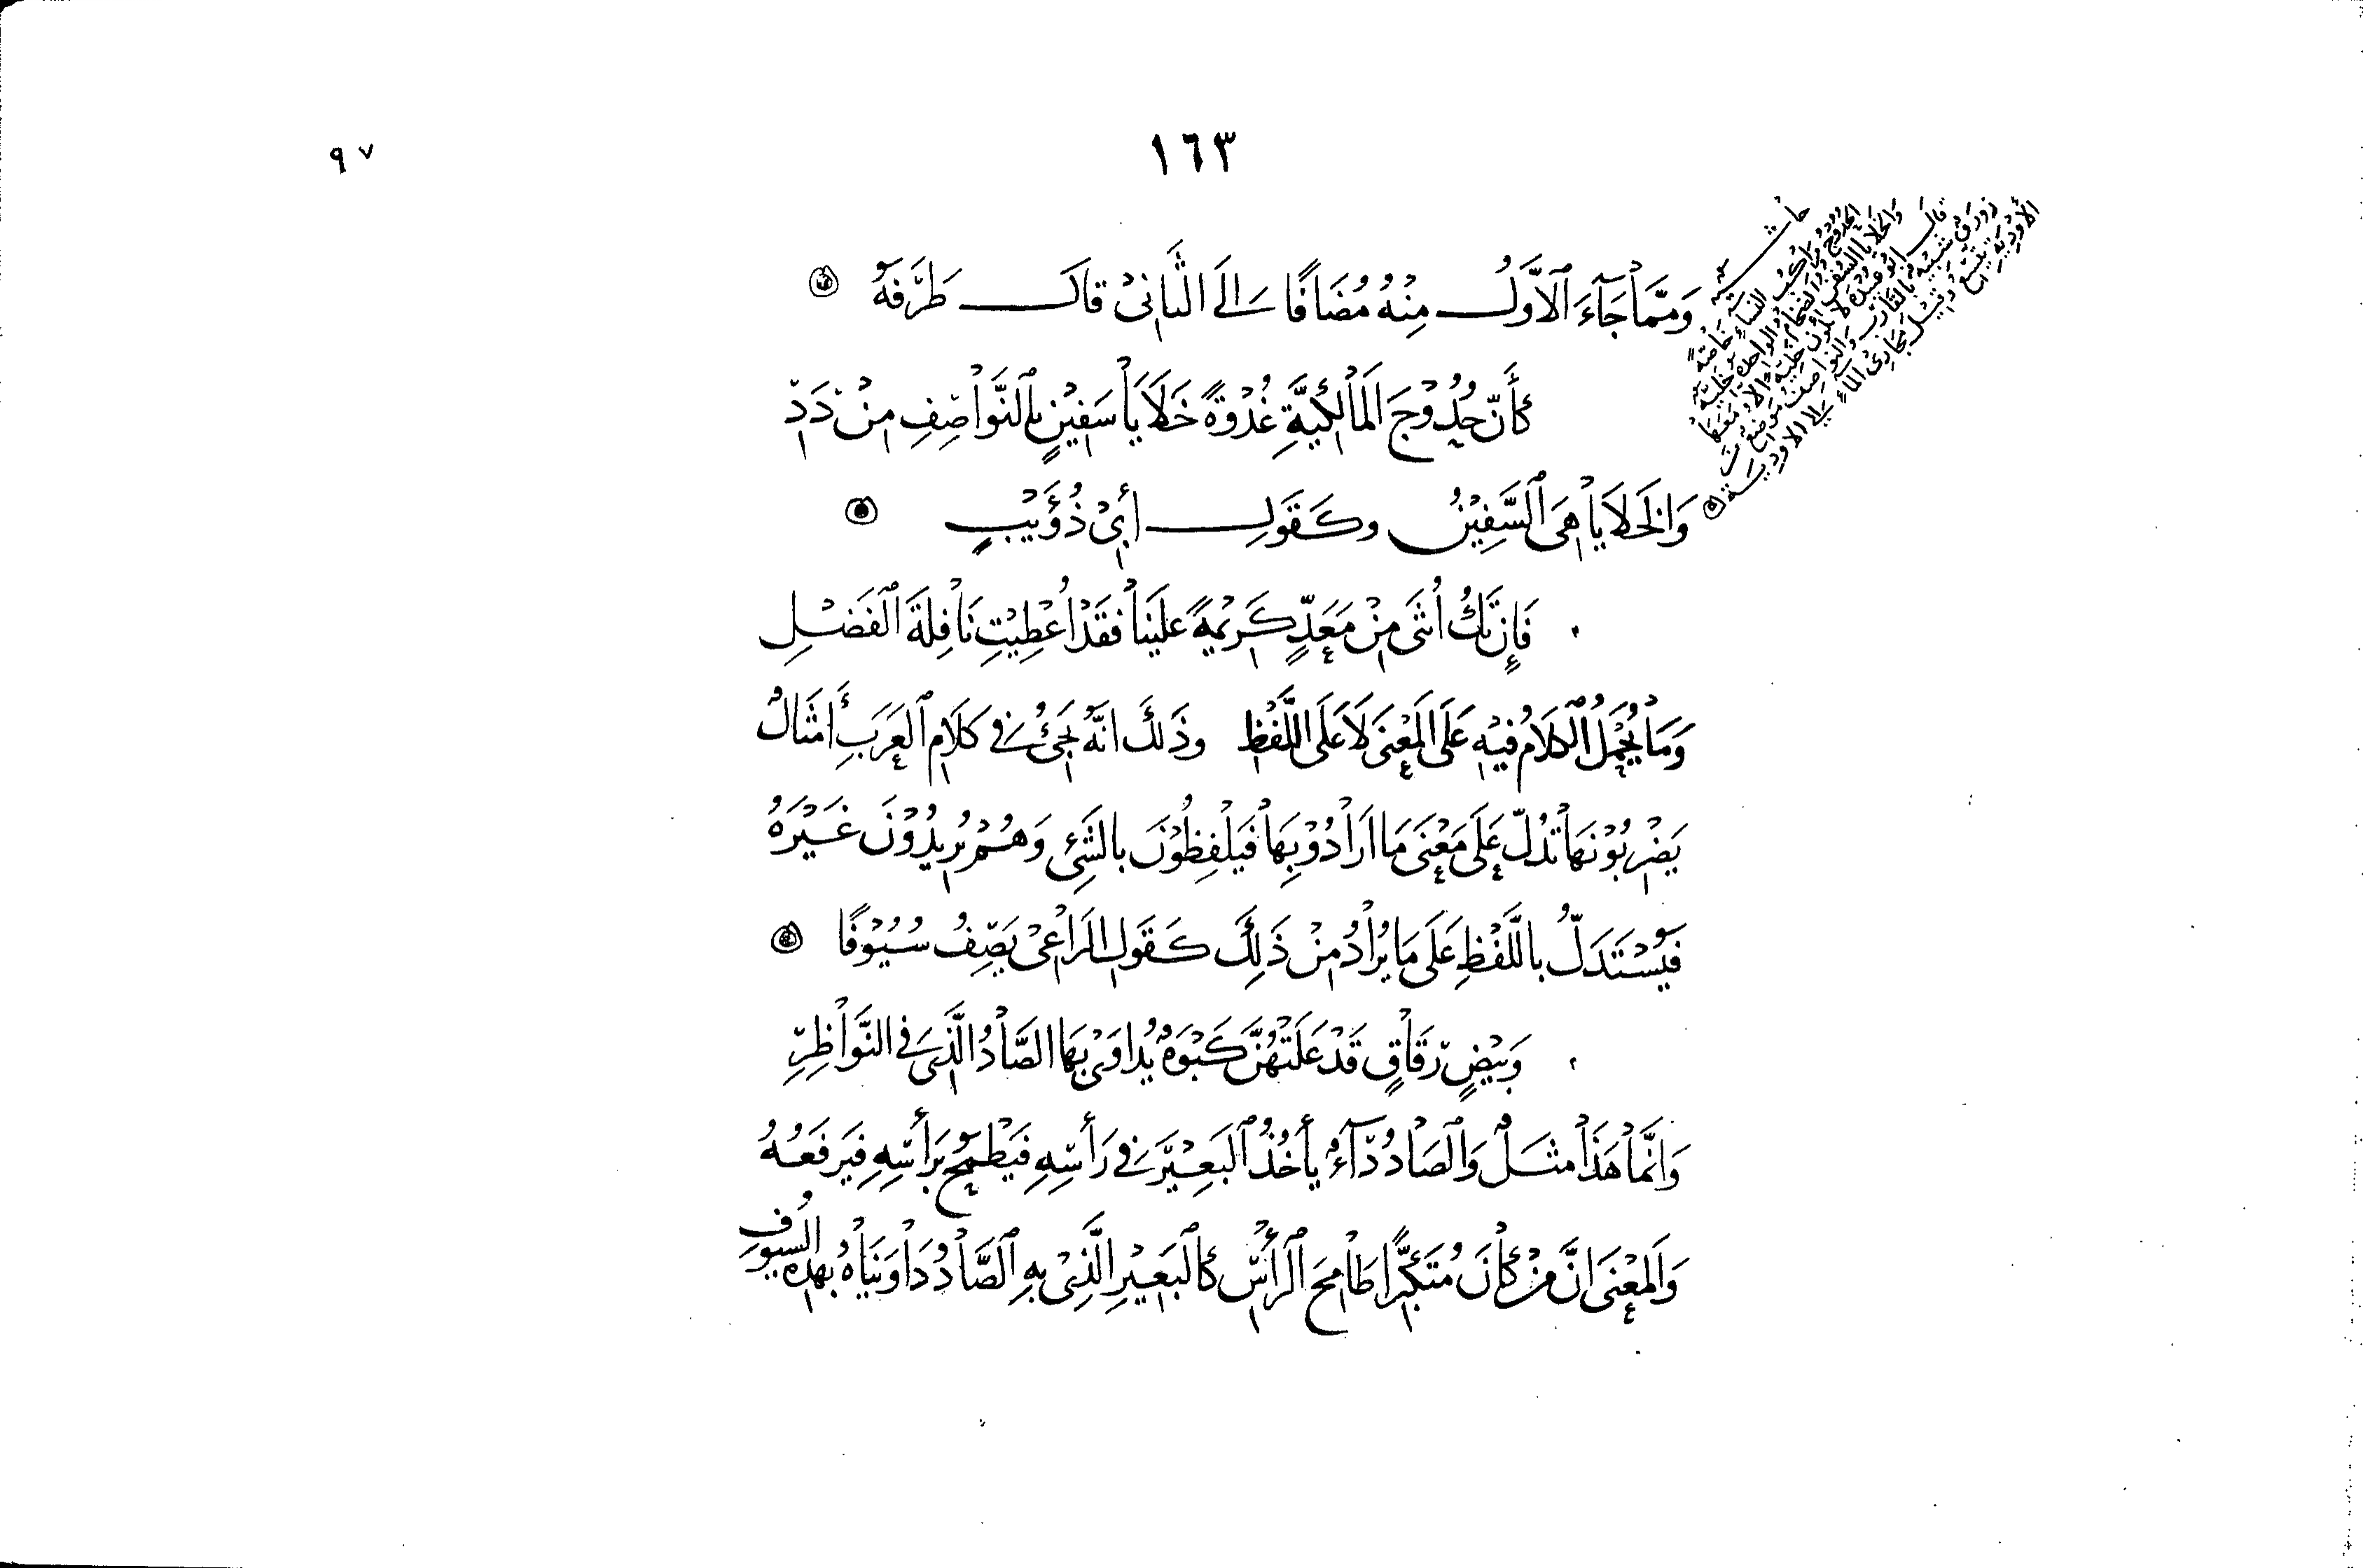 ١٦٣
٩٧
وَمِمَّا جَآءَ ٱلْأَوَّلُ مِنْهُ مُضَافًا إِلَى الثَّانِيْ قَالَ طَرَفَةُ
كَأَنَّ حُدُوْجَ الْمَالِكِيَّةِ غُدْوَةً خَلَايَا سَفِيْنٍ بِٱلنَّوَاصِفِ مِنْ دَدِ
وَالْخَلَايَا هِيَ ٱلسَّفِيْنُ وكَقَوْلِ أَبِيْ ذُؤَيْبٍ
فَإِنْ تَكُ أُنْثَى مِنْ مَعَدٍّ كَرِيْمَةً عَلَيْنَا فَقَدْ أُعْطِيْتِ نَافِلَةَ ٱلْفَضْلِ
وَمَا يُحْمَلُ ٱلْكَلَامُ فِيْهِ عَلَى الْمَعْنَى لَا عَلَى اللَّفْظِ وذَلِكَ انَّهُ يَجِيْءُ فِي كَلَامِ ٱلْعَرَبِ أَمْثَالٌ
يَضْرِبُوْنَهَا تَدُلُّ عَلَى مَعْنَى مَا ارَادُوْا بِهَا فَيَلْفِظُوْنَ بالشَّيْءِ وَهُمْ يُرِيْدُوْنَ غَيْرَهُ
فَيُسْتَدَلُّ باللَّفْظِ عَلَى مَا يُرَادُ مِنْ ذَلِكَ كَقَوْلِ الرَّاعِيْ يَصِفُ سُيُوْفًا
وَبِيْضٍ رِقَاقٍ قَدْ عَلَتْهُنَّ كَبْوَةٌ يُدَاوَى بِهَا الصَّادُ الَّذِي فِي النَّوَاظِرِ
وَانَّمَا هَذَا مَثَلٌ وَالصَّادُ دَآءٌ يأْخُذُ ٱلْبَعِيْرَ فِي رَأْسِهِ فَيَطْمَحُ بِرَأْسِهِ فَيَرْفَعُهُ
وَالْمَعْنَى انَّ مَنْ كَانَ مُتَكَبِّرًا طَامِحَ ٱلرَّأْسِ كَالْبَعِيْرِ الَّذِيْ بِهِ ٱلصَّادُ دَاوَيْنَاهُ بِهَذِهِ السُّيُوفِ
حاشية
الحُدُوج مَرَاكب النساء خاصّةً
وَالخَلايا السُّفن الضخام الواحدة خليّة
قال أبو عبيدة لا تكون خليّة الا ومعها
زورق شبيه بالقارب والنواصف مواضع من
الأودية تتسع وقيل مجاري الماء الى الاودية